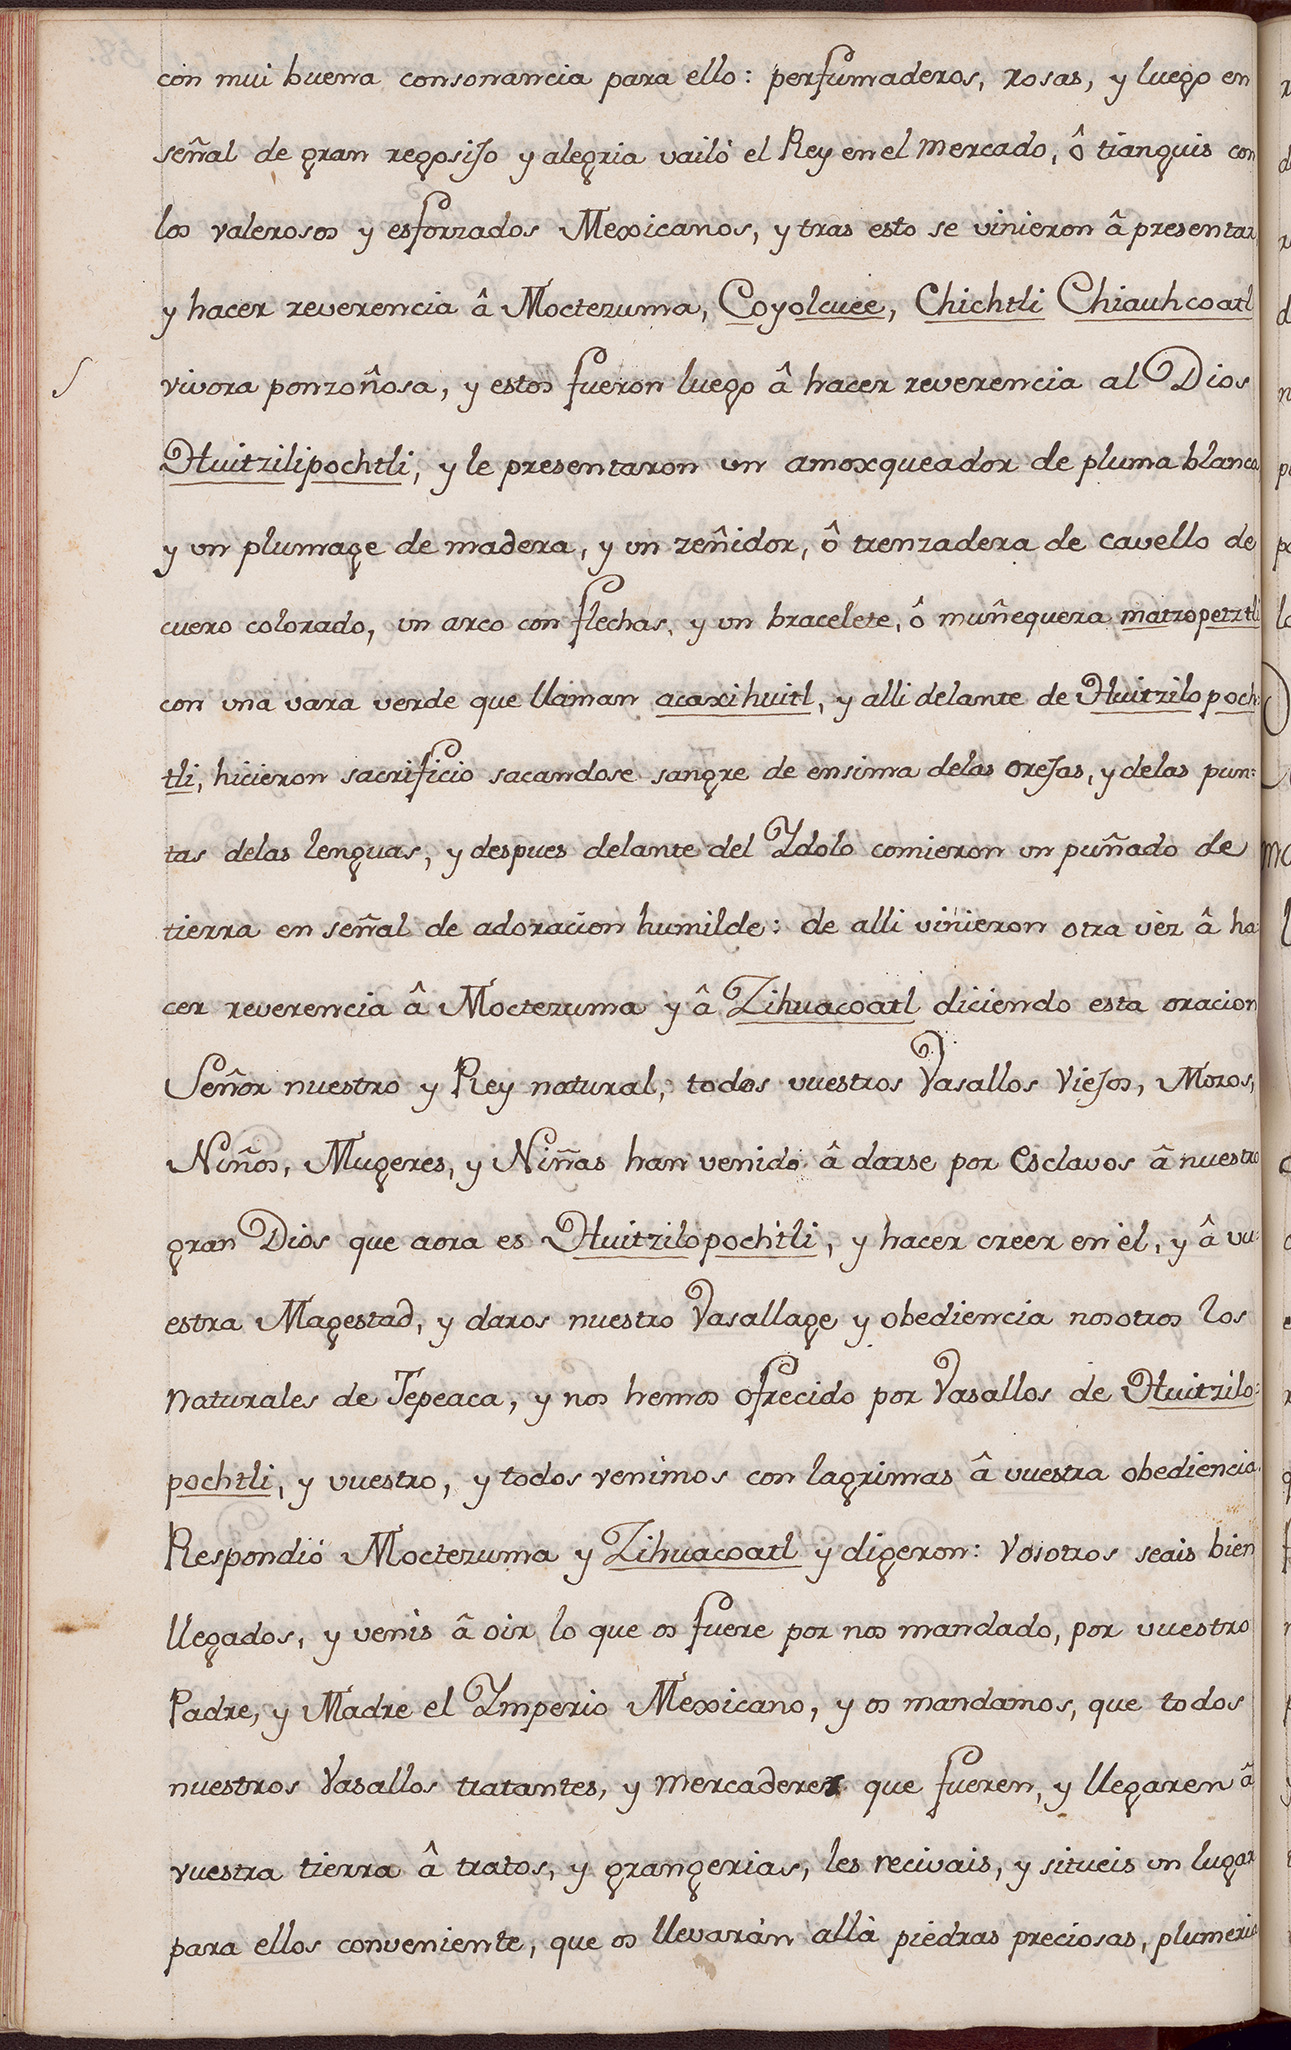 con mui buena consonancia para ello: perfumaderos, rosas, y luego en
señal de gran regosiJo y alegria vailó el Rey en el mercado, ô tianguis con
los valerosos y esforzados Mexicanos, y tras esto se vinieron â presentar
y hacer reverencia â Moctezuma, Coyolcuee, Chichtli Chiauhcoatl
vivora ponzoñosa, y estos fueron luego â hacer reverencia al Dios
Huitzilipochtli, y le presentaron un amoxqueador de pluma blanca
y un plumage de madera, y un zeñidor, ô trenzadera de cavello de
cuero colorado, un arco con flechas, y un bracelete, ô muñequera matzopetztli
con una vara verde que llaman acaxihuitl, y alli delante de Huitzilopoch:
tli, hicieron sacrificio sacandose sangre de ensima delas oreJas, y delas pun:
tas delas lenguas, y despues delante del Ydolo comieron un puñado de
tierra en señal de adoracion humilde: de alli vinieron otra vèz â ha:
cer reverencia â Moctezuma y â Zihuacoatl diciendo esta oracion
Señor nuestro y Rey natural, todos vuestros Vasallos VieJos, Mozos,
Niños, Mugeres, y Niñas han venido â darse por Esclavos â nuestro
gran Dios que aora es Huitzilopochtli, y hacer creer en él, y â vu:
estra Magestad, y daros nuestro Vasallage y obediencia nosotros los
naturales de Tepeaca, y nos hemos ofrecido por Vasallos de Huitzilo:
pochtli, y vuestro, y todos venimos con lagrimas â vuestra obediencia.
Respondió Moctezuma y Zihuacoatl y digeron: Vosotros seais bien
llegados, y venis â oir lo que os fuere por nos mandado, por vuestro
Padre, y Madre el Ymperio Mexicano, y os mandamos, que todos
nuestros Vasallos tratantes, y mercaderes que fueren, y llegaren â
vuestra tierra â tratos, y grangerias, les recivais, y situeis un lugar
para ellos conveniente, que os llevarán allà piedras preciosas, plumeria